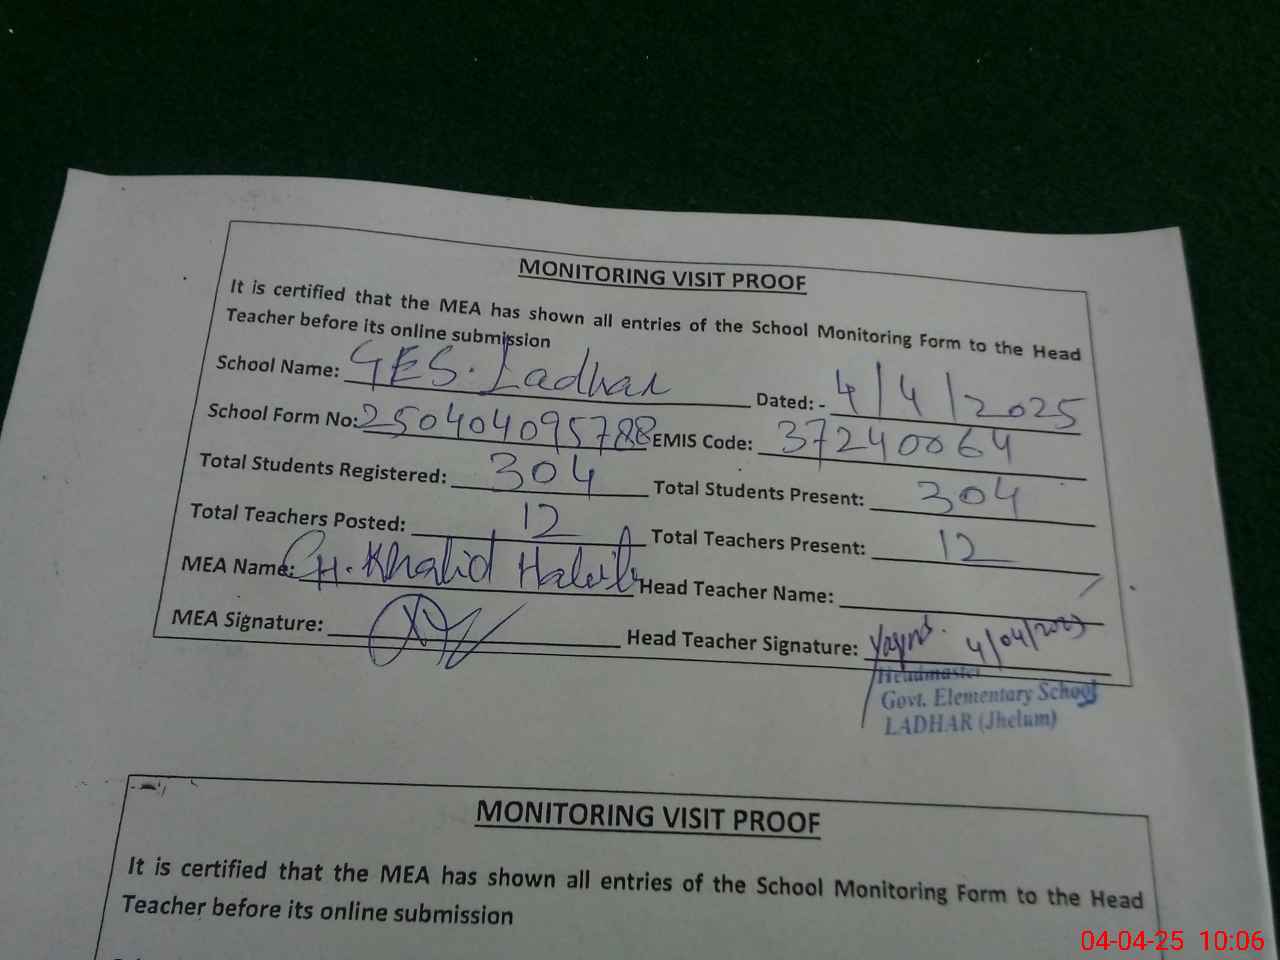 MONITORING VISIT PROOF
It is certified that the MEA has shown all entries of the School Monitoring Form to the Head
Teacher before its online submission
School Name: GES. Ladhar Dated: - 4/4/2025
School Form No: 250404095788 EMIS Code: 37240064
Total Students Registered: 304 Total Students Present: 304
Total Teachers Posted: 12 Total Teachers Present: 12
MEA Name: CH. Khalid Habib Head Teacher Name:
MEA Signature: Head Teacher Signature: 4/04/2025
Headmaster
Govt. Elementary School
LADHAR (Jhelum)
MONITORING VISIT PROOF
It is certified that the MEA has shown all entries of the School Monitoring Form to the Head
Teacher before its online submission
04-04-25 10:06